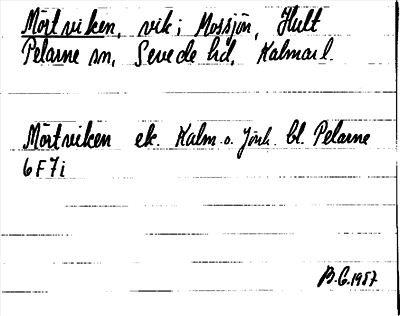 Mörtviken, vik i Mossjön, Hult
Pelarne sn, Sevede hd, Kalmar l.
Mörtviken ek. Kalm. o. Jönk. bl. Pelarne
6 F 7 i
B.G. 1957